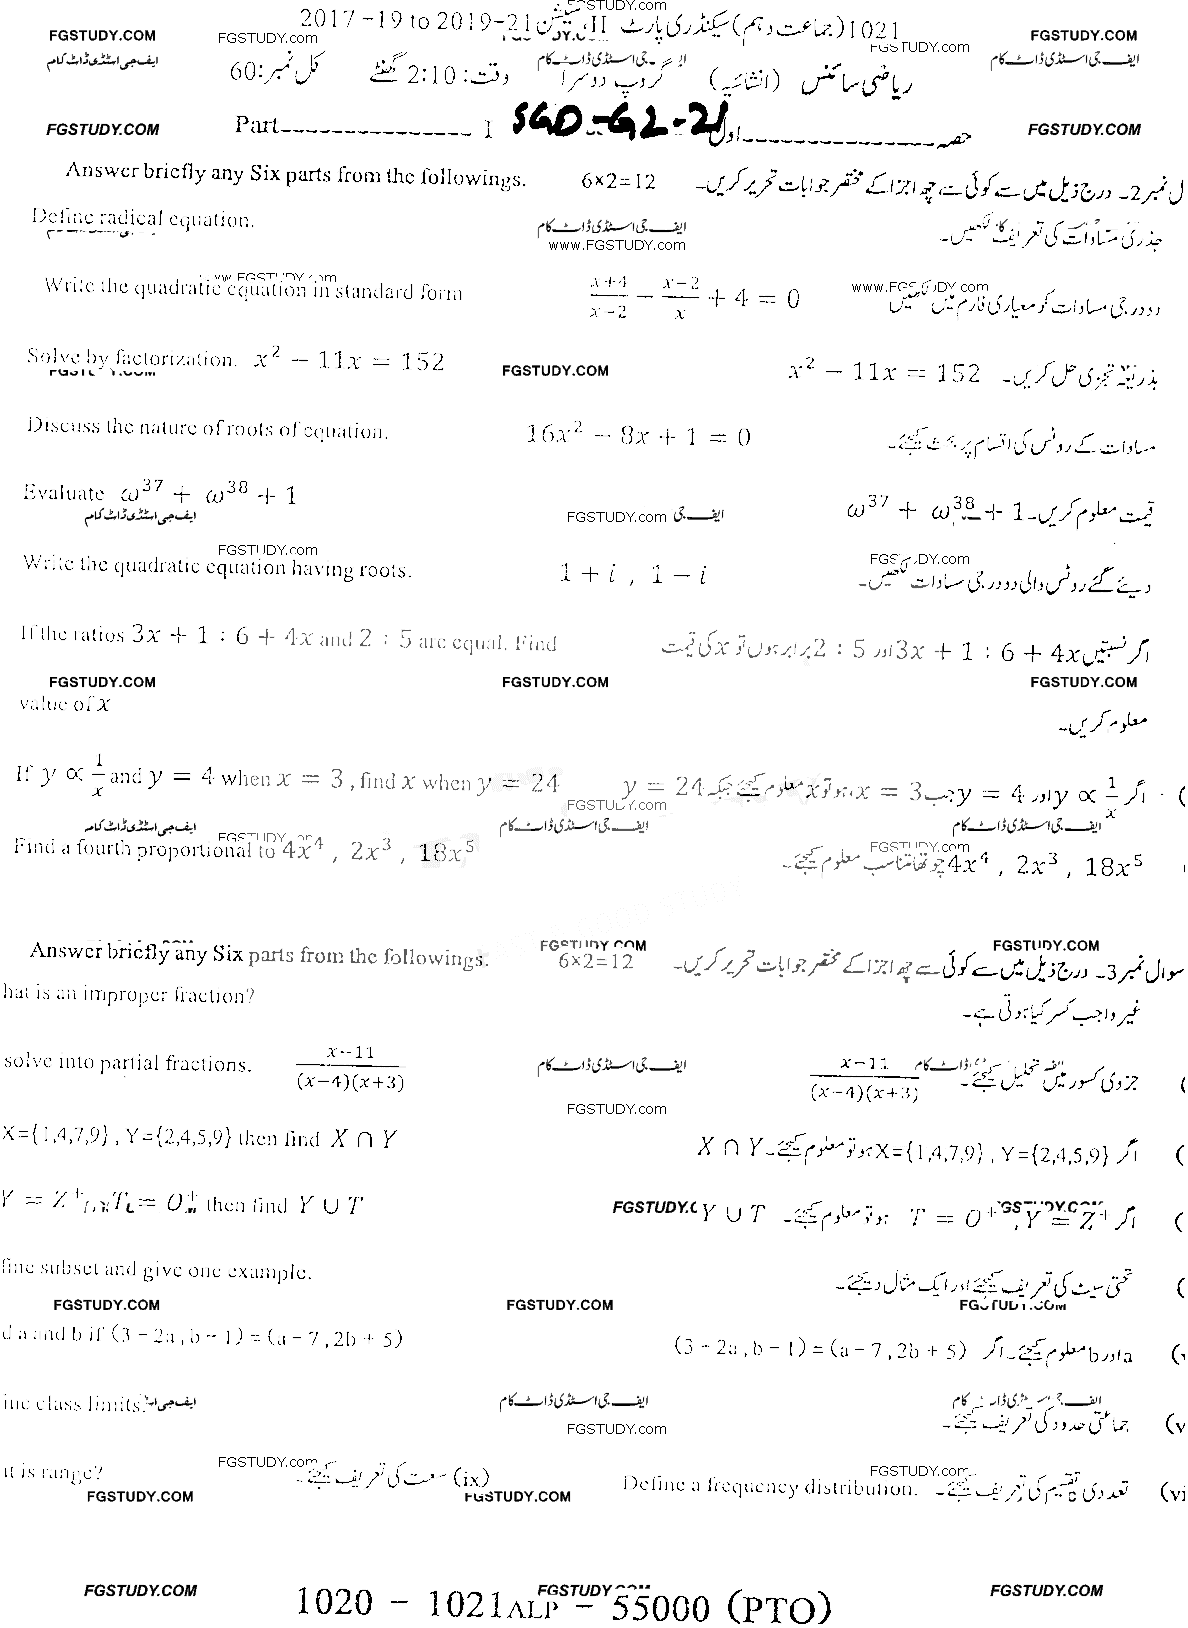 1021(جماعت دہم) سیکنڈری پارٹ II، سیشن 2017-19 to 2019-21
FGSTUDY.COM FGSTUDY.com FGSTUDY.com FGSTUDY.COM
ریاضی سائنس (انشائیہ) گروپ دوسرا وقت: 2:10 گھنٹے کل نمبر: 60
FGSTUDY.COM Part I SGD-G2-21 حصہ اول FGSTUDY.COM
Answer briefly any Six parts from the followings. 6×2=12 درج ذیل میں سے کوئی سے چھ اجزا کے مختصر جوابات تحریر کریں۔
Define radical equation. جذری مساوات کی تعریف لکھیں۔
www.FGSTUDY.com
Write the quadratic equation in standard form (x+4)/(x−2) − (x−2)/x + 4 = 0 دو درجی مساوات کو معیاری فارم میں لکھیں
Solve by factorization. x² − 11x = 152 بذریعہ تجزی حل کریں۔ x² − 11x = 152
FGSTUDY.COM
Discuss the nature of roots of equation. 16x² − 8x + 1 = 0 مساوات کے روٹس کی اقسام پر بحث کیجئے۔
Evaluate ω³⁷ + ω³⁸ + 1 قیمت معلوم کریں۔ ω³⁷ + ω³⁸ + 1
FGSTUDY.com
Write the quadratic equation having roots. 1 + i , 1 − i دیئے گئے روٹس والی دو درجی مساوات لکھیں۔
If the ratios 3x + 1 : 6 + 4x and 2 : 5 are equal. Find اگر نسبتیں 3x + 1 : 6 + 4x اور 2 : 5 برابر ہوں تو x کی قیمت
FGSTUDY.COM FGSTUDY.COM FGSTUDY.COM
value of x معلوم کریں۔
If y ∝ 1/x and y = 4 when x = 3, find x when y = 24 اگر y ∝ 1/x اور y = 4 جب x = 3 ہو تو x معلوم کیجئے جبکہ y = 24
FGSTUDY.com
Find a fourth proportional to 4x⁴ , 2x³ , 18x⁵ چوتھا متناسب معلوم کیجئے۔ 4x⁴ , 2x³ , 18x⁵
Answer briefly any Six parts from the followings. 6×2=12 سوال نمبر 3۔ درج ذیل میں سے کوئی سے چھ اجزا کے مختصر جوابات تحریر کریں۔
hat is an improper fraction? غیر واجب کسر کیا ہوتی ہے۔
solve into partial fractions. (x−11)/((x−4)(x+3)) جزوی کسور میں تحلیل کیجئے۔ (x−11)/((x−4)(x+3))
FGSTUDY.com
X={1,4,7,9} , Y={2,4,5,9} then find X ∩ Y اگر X={1,4,7,9} , Y={2,4,5,9} ہو تو معلوم کیجئے۔ X ∩ Y
Y = Z⁺, T = O⁺ then find Y ∪ T اگر Y = Z⁺ , T = O⁺ ہو تو معلوم کیجئے۔ Y ∪ T
fine subset and give one example. تحتی سیٹ کی تعریف کیجئے اور ایک مثال دیجئے۔
FGSTUDY.COM FGSTUDY.COM FGSTUDY.COM
d a and b if (3 − 2a, b − 1) = (a − 7, 2b + 5) a اور b معلوم کیجئے۔ اگر (3 − 2a, b − 1) = (a − 7, 2b + 5)
ine class limits. جماعتی حدود کی تعریف کیجئے۔
FGSTUDY.com
at is range? سعت کی تعریف کیجئے۔ (ix) Define a frequency distribution. تعددی تقسیم کی تعریف کیجئے۔
FGSTUDY.COM FGSTUDY.COM
FGSTUDY.COM FGSTUDY.COM FGSTUDY.COM
1020 - 1021 ALP - 55000 (PTO)